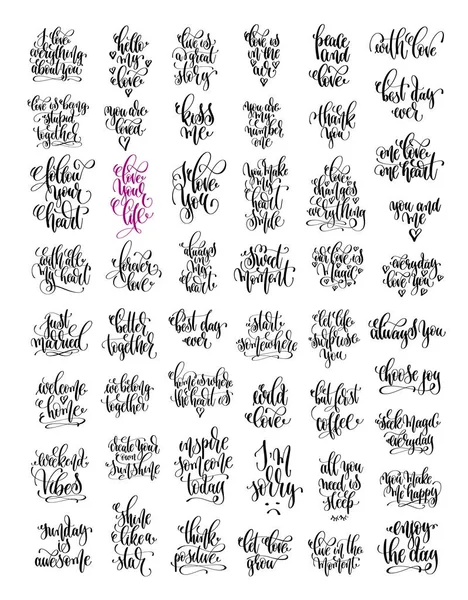 I love
everything
about you
hello
my
love
love is
a great
story
love is
in the
air
peace
and
love
with love
love is being
stupid
together
you are
loved
kiss
me
you are
my
number
one
thank
you
best day
ever
follow
your
heart
love
your
life
I love
you
you make
my
heart
smile
love
changes
everything
one love
one heart
you and
me
with all
my heart
forever
love
always
in my
heart
Sweet
moment
our love is
Magic
everyday
love you
just
married
better
together
best day
ever
start
somewhere
let life
surprise
you
always you
welcome
home
we belong
together
home is where
the heart is
wild
love
but first
coffee
choose joy
weekend
Vibes
create your
own
Sunshine
inspire
someone
today
I'm
sorry
all you
need is
sleep
seek Magic
everyday
you Make
me happy
sunday
is
awesome
Shine
like a
star
think
positive
let love
grow
live in the
moment
enjoy
the day